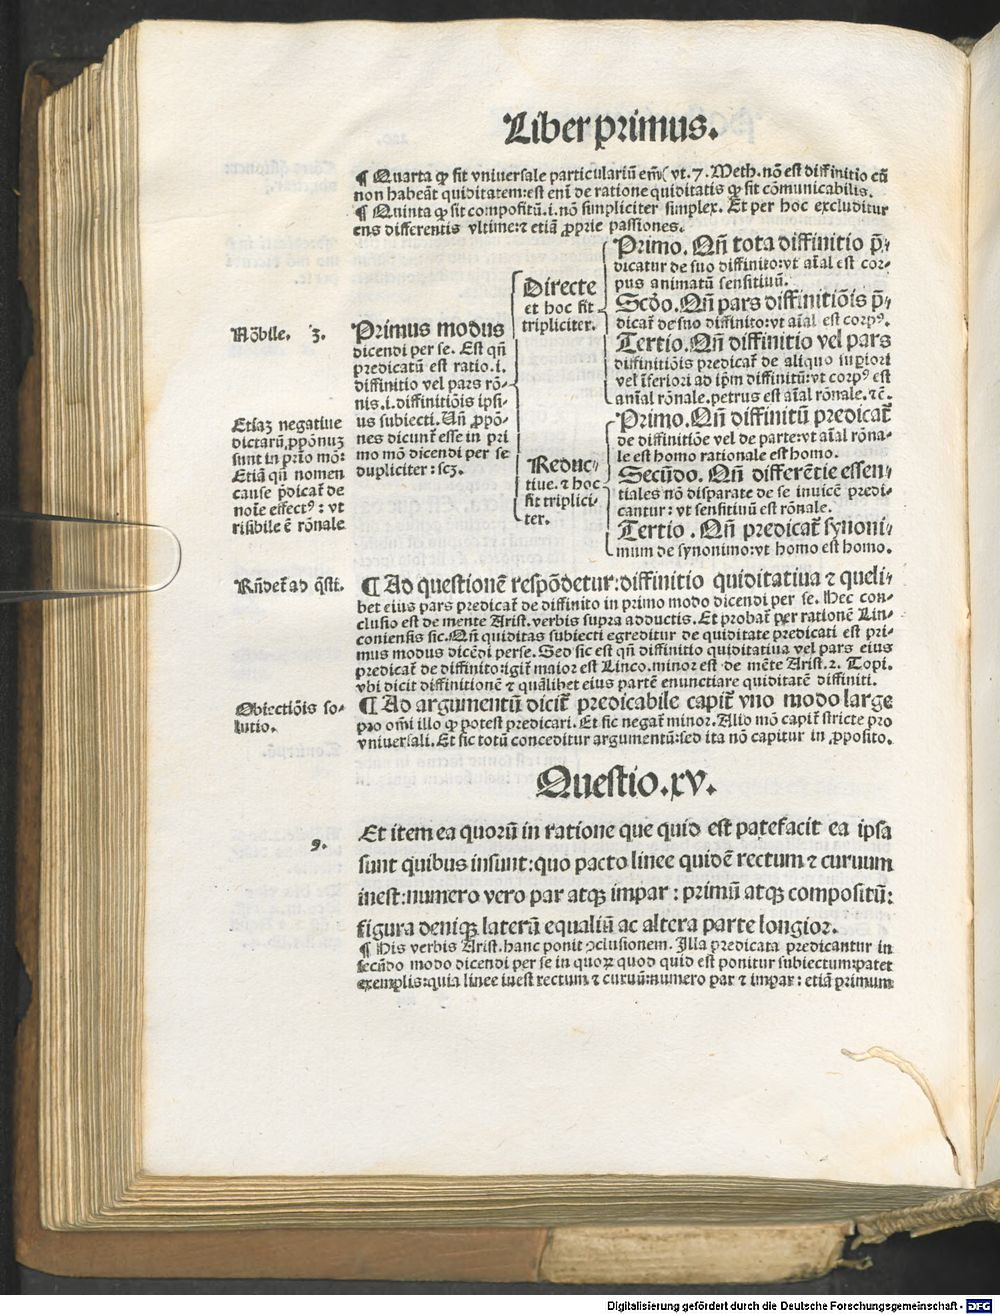 Liber primus.
¶ Quarta ꝙ sit vniuersale particulariũ em̃( vt .7. Meth. nõ est diffinitio cũ
non habeãt quiditatem: est eni̅ de ratione quiditatis ꝙ sit cõmunicabilis.
¶ Quinta ꝙ sit compositũ .i. nõ simpliciter simplex. Et per hoc excluditur
ens differentis vltime: ⁊ etiã ꝓprie passiones.
Nõbile. 3.
Primus modus
dicendi per se. Est qñ
predicatũ est ratio .i.
diffinitio vel pars rõ-
nis .i. diffinitiõis ipsi-
us subiecti. Uñ ꝓpõ-
nes dicunt᷑ esse in pri
mo mõ dicendi per se
dupliciter: scꝫ.
Directe
et hoc fit
tripliciter.
Primo. Qñ tota diffinitio p̃-
dicatur de suo diffinito: vt aĩal est cor-
pus animatũ sensitiuũ.
Scðo. Qñ pars diffinitiõis p̃-
dicat᷑ de suo diffinito: vt aĩal est corpꝰ.
Tertio. Qñ diffinitio vel pars
diffinitiõis predicat᷑ de aliquo supiori
vel ĩferiori ad ip̃m diffinitũ: vt corpꝰ est
aĩal rõnale. petrus est aĩal rõnale. ⁊c̃.
Reduc-
tiue. ⁊ hoc
fit triplici-
ter.
Primo. Qñ diffinitũ predicat᷑
de diffinitiõe vel de parte: vt aĩal rõna-
le est homo rationale est homo.
Secũdo. Qñ differẽtie essen-
tiales nõ disparate de se inuicẽ predi-
cantur: vt sensitiuũ est rõnale.
Tertio. Qñ predicat᷑ synoni-
mum de synonimo: vt homo est homo.
Etiaꝫ negatiue
dictarũ ꝓpõnuꝫ
sunt in prĩo mõ:
Etiã qñ nomen
cause p̃dicat᷑ de
noĩe effectꝰ: vt
risibile ẽ rõnale
Rñdet᷑ ad q̃sti.
¶ Ad questionẽ respõdetur: diffinitio quiditatiua ⁊ queli-
bet eius pars predicat᷑ de diffinito in primo modo dicendi per se. Hec con-
clusio est de mente Arist. verbis supra adductis. Et probat᷑ per rationẽ Lin-
coniensis sic. Qñ quiditas subiecti egreditur de quiditate predicati est pri-
mus modus dicẽdi perse. Sed sic est qñ diffinitio quiditatiua vel pars eius
predicat᷑ de diffinito: igit᷑ maior est Linco. minor est de mẽte Arist. 2. Topi.
vbi dicit diffinitionẽ ⁊ quãlibet eius partẽ enunctiare quiditatẽ diffiniti.
Obiectiõis so-
lutio.
¶ Ad argumentũ dicit᷑ predicabile capit᷑ vno modo large
pro om̃i illo ꝙ potest predicari. Et sic negat᷑ minor. Alio mõ capit᷑ stricte pro
vniuersali. Et sic totũ conceditur argumentũ: sed ita nõ capitur in ꝓposito.
Questio .xv.
Et item ea quorũ in ratione que quid est patefacit ea ipsa
9.
sunt quibus insunt: quo pacto linee quidẽ rectum ⁊ curuum
inest: numero vero par atqꝫ impar: primũ atqꝫ compositũ:
figura deniqꝫ laterũ equaliũ ac altera parte longior.
¶ His verbis Arist. hanc ponit ꝯclusionem. Illa predicata predicantur in
secũdo modo dicendi per se in quoꝝ quod quid est ponitur subiectum: patet
exemplis: quia linee inest rectum ⁊ curuũ: numero par ⁊ impar: etiã primum
Digitalisierung gefördert durch die Deutsche Forschungsgemeinschaft - DFG